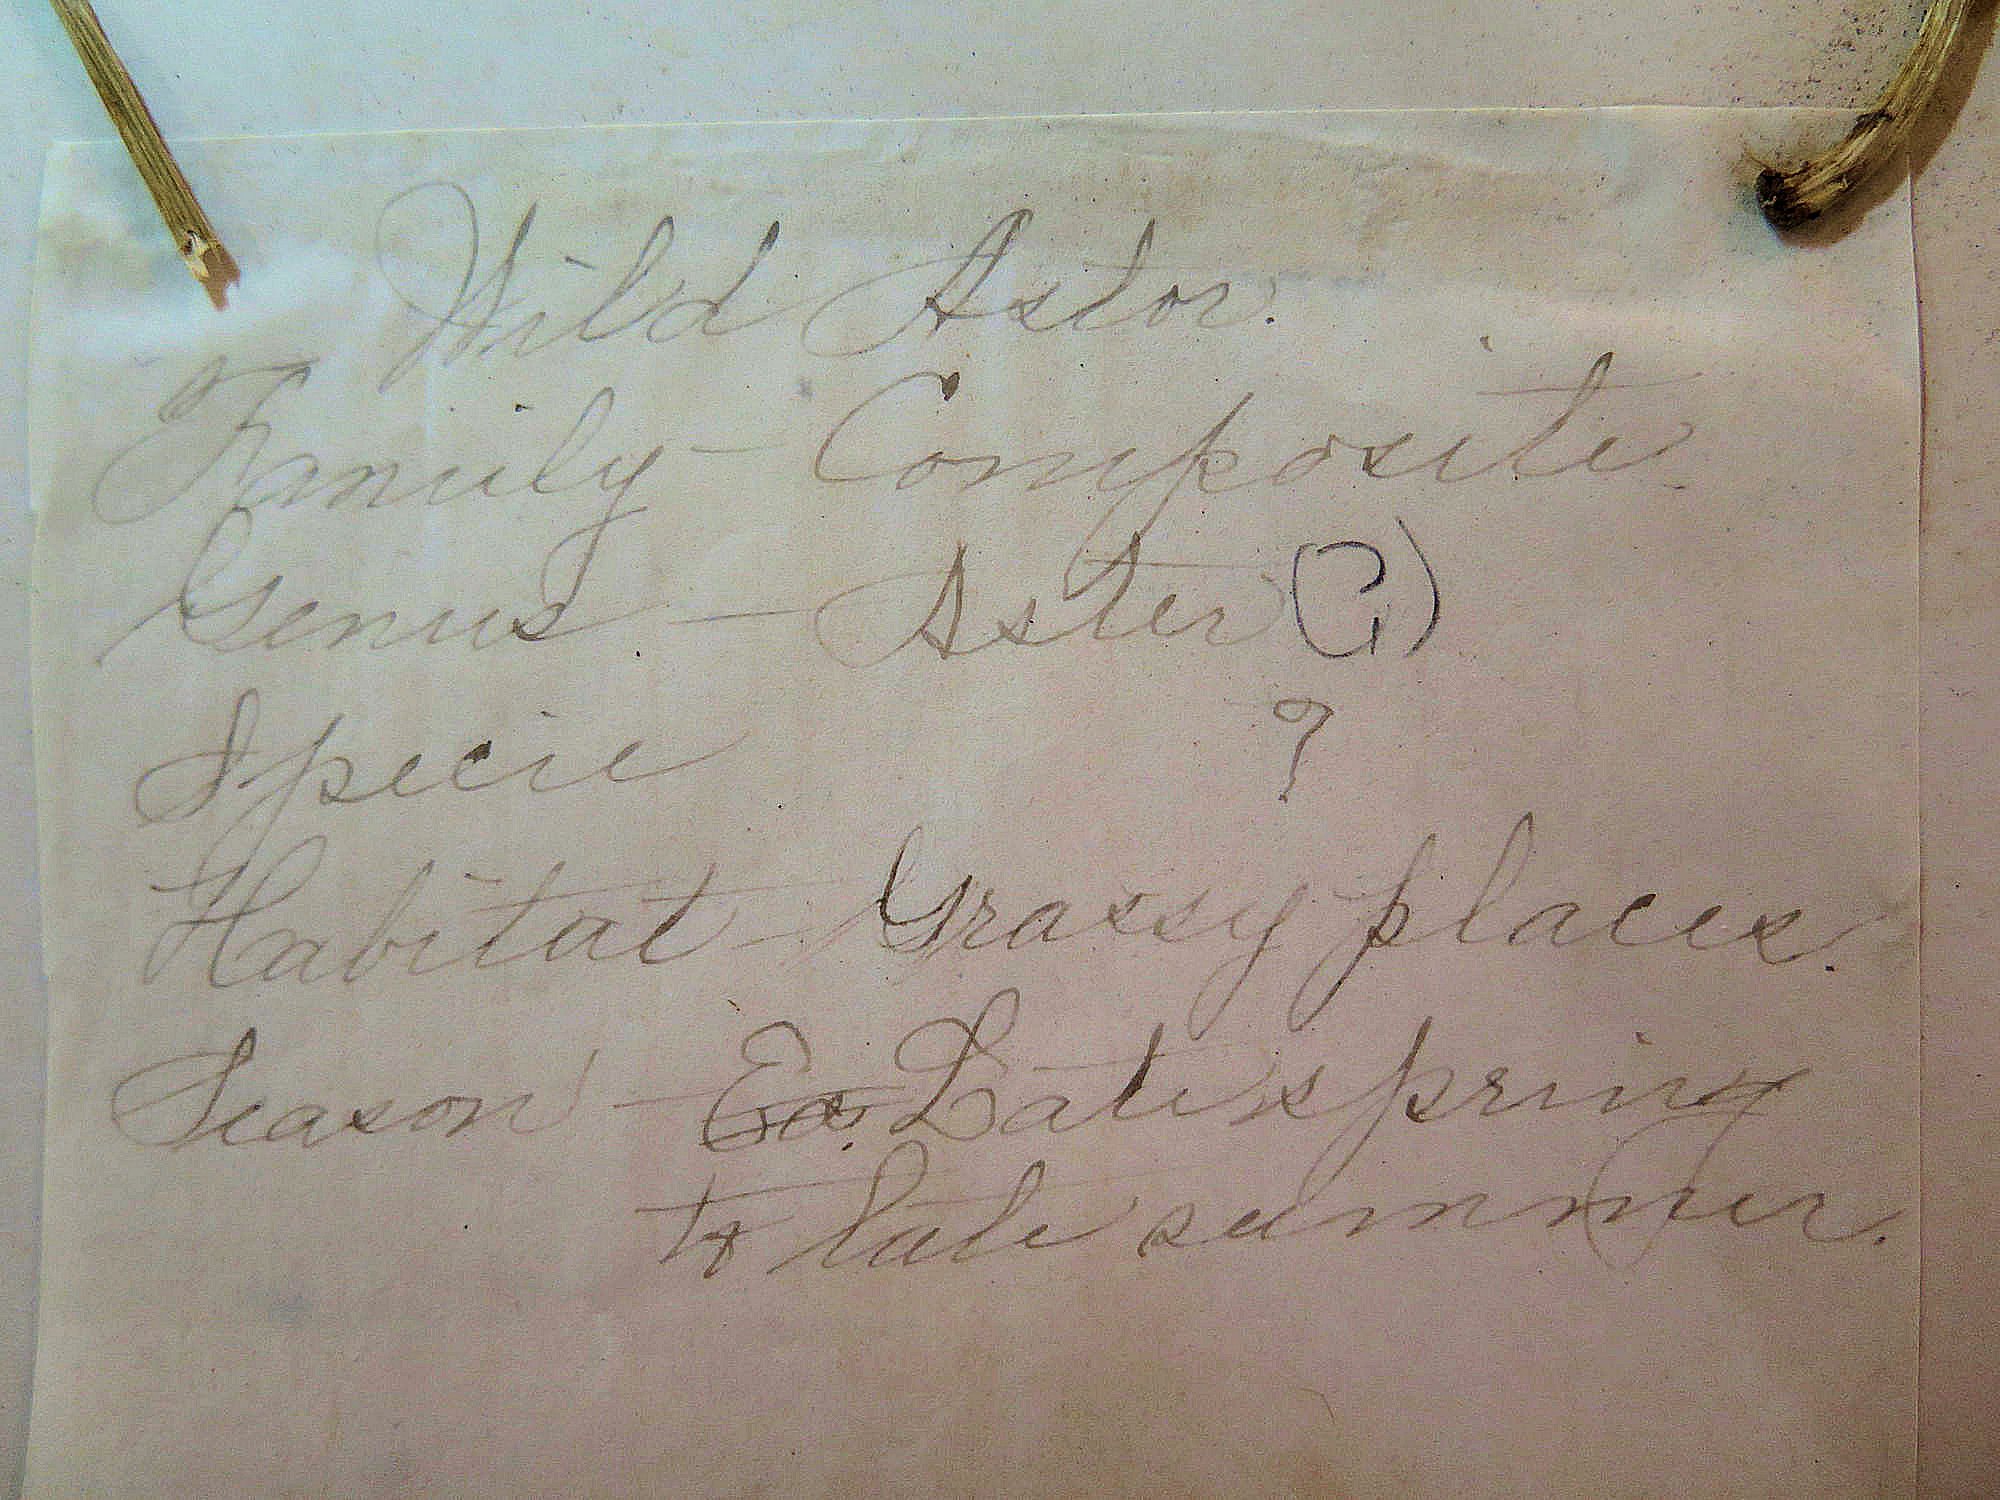 Wild Astor.
Family - Composite
Genus - Aster (?)
Specie ?
Habitat - Grassy places.
Season - Ea. Late spring
to late summer.